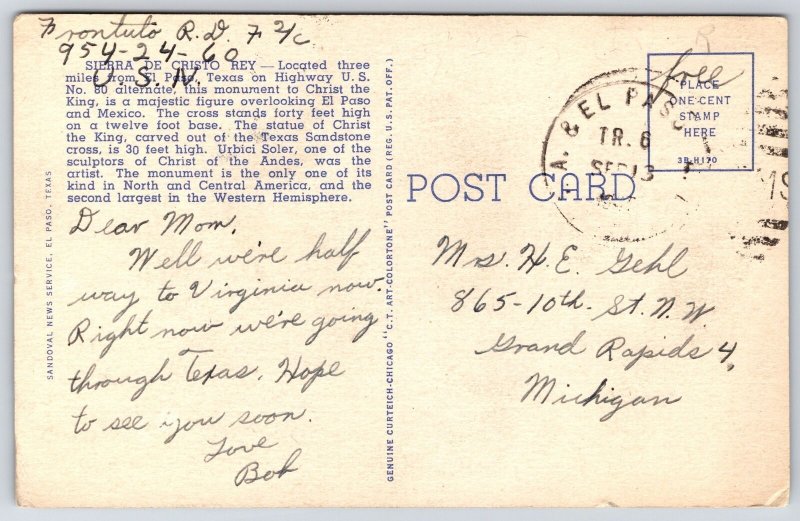 R. D. F 2/c
954-24-60
U. S. N.
SIERRA DE CRISTO REY — Located three
miles from El Paso, Texas on Highway U. S.
No. 80 alternate, this monument to Christ the
King, is a majestic figure overlooking El Paso
and Mexico. The cross stands forty feet high
on a twelve foot base. The statue of Christ
the King, carved out of the Texas Sandstone
cross, is 30 feet high. Urbici Soler, one of the
sculptors of Christ of the Andes, was the
artist. The monument is the only one of its
kind in North and Central America, and the
second largest in the Western Hemisphere.
Dear Mom,
Well we're half
way to Virginia now.
Right now we're going
through Texas. Hope
to see you soon.
Love
Bob
SANDOVAL NEWS SERVICE, EL PASO, TEXAS
GENUINE CURTEICH-CHICAGO "C.T. ART-COLORTONE" POST CARD (REG. U. S. PAT. OFF.)
POST CARD
free
PLACE
ONE CENT
STAMP
HERE
3B-H170
A. & EL PASO
TR. 6
SEP 13
Mrs. H. E. Gehl
865-10th. St. N. W
Grand Rapids 4,
Michigan